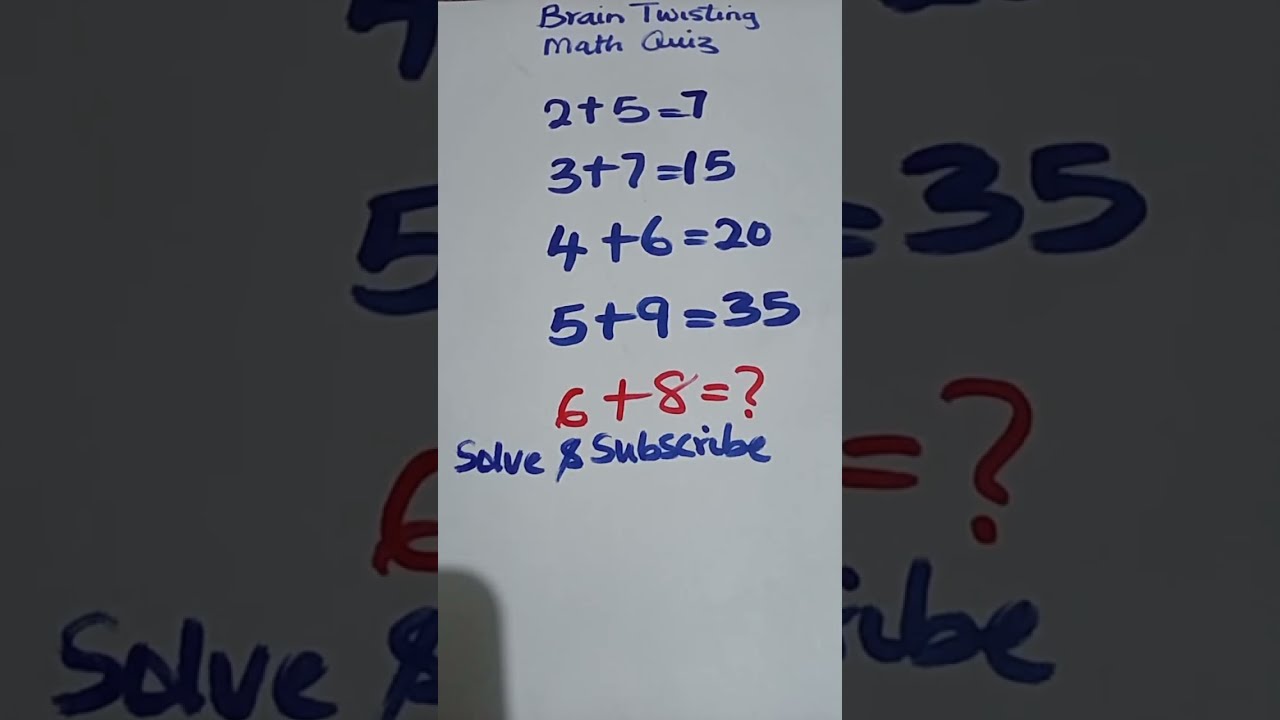 Brain Twisting
Math Quiz
2+5=7
3+7=15
4+6=20
5+9=35
6+8=?
Solve & Subscribe